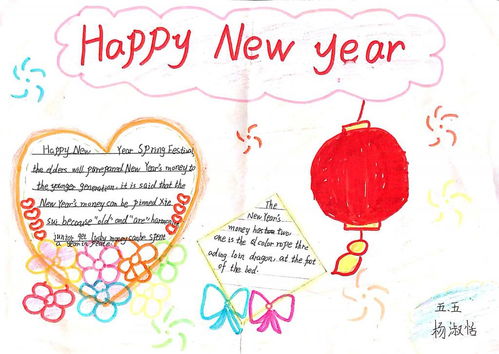 Happy New year
Happy New Year Spring Festival,
the elders will purepared New Year's money to
the younger generation, it is said that the
New Year's money can be pimed Xie
sui because "old" and "are" harmony
junior get lucky money can be spent
a year in peace.
The
New Year's
money has two
one is the color rope thre
ading loin dragon, at the foot
of the bed.
五.五
杨淑怡